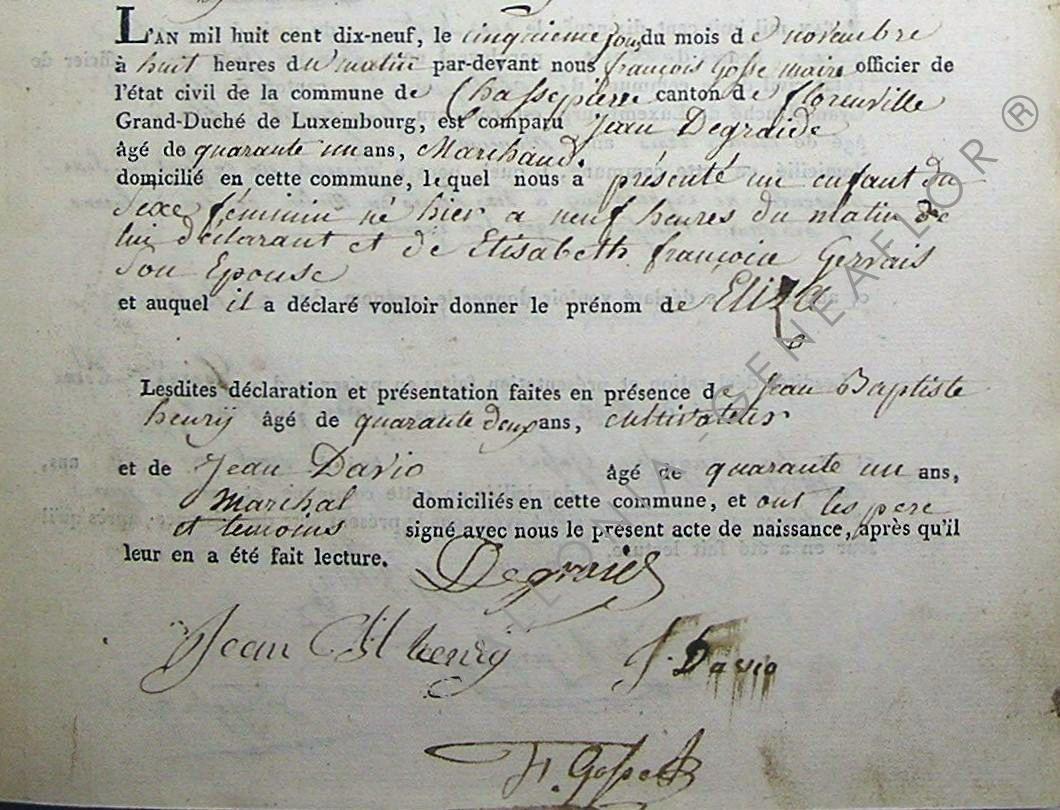 L'AN mil huit cent dix-neuf, le cinquieme jour du mois de novembre
à huit heures du matin par-devant nous françois Gosse maire officier de
l'état civil de la commune de Chassepierre canton de florenville
Grand-Duché de Luxembourg, est comparu Jean Degraide
âgé de quarante un ans, Marchand.
domicilié en cette commune, lequel nous a présenté un enfant du
Sexe féminin né hier a neuf heures du matin de
lui déclarant et de Elisabeth françoise Gervais
Son Epouse
et auquel il a déclaré vouloir donner le prénom de Eliza
Lesdites déclaration et présentation faites en présence de Jean Baptiste
henrÿ âgé de quarante deux ans, cultivateur
et de Jean Davio âgé de quarante un ans,
Marichal domiciliés en cette commune, et ont les pere
et temoins signé avec nous le présent acte de naissance, après qu'il
leur en a été fait lecture.
Degraide
Jean Bt henrÿ
J. Davio
F. Gosse
GENEAFLOR ®